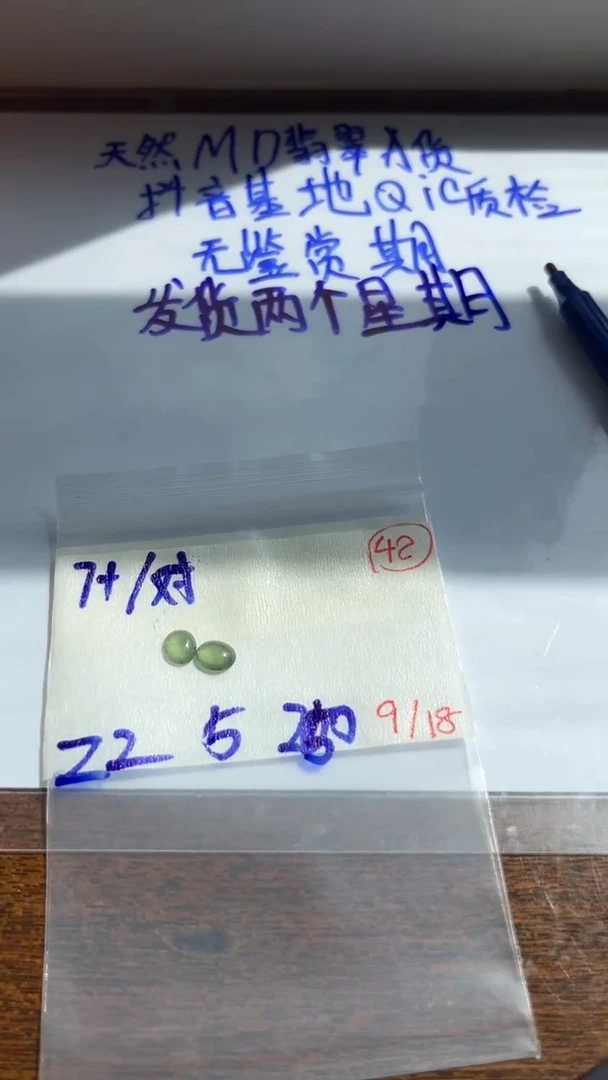 天然MD翡翠A货
抖音基地QiC质检
无鉴赏期
发货两个星期
42
7+/对
22 5
9/18